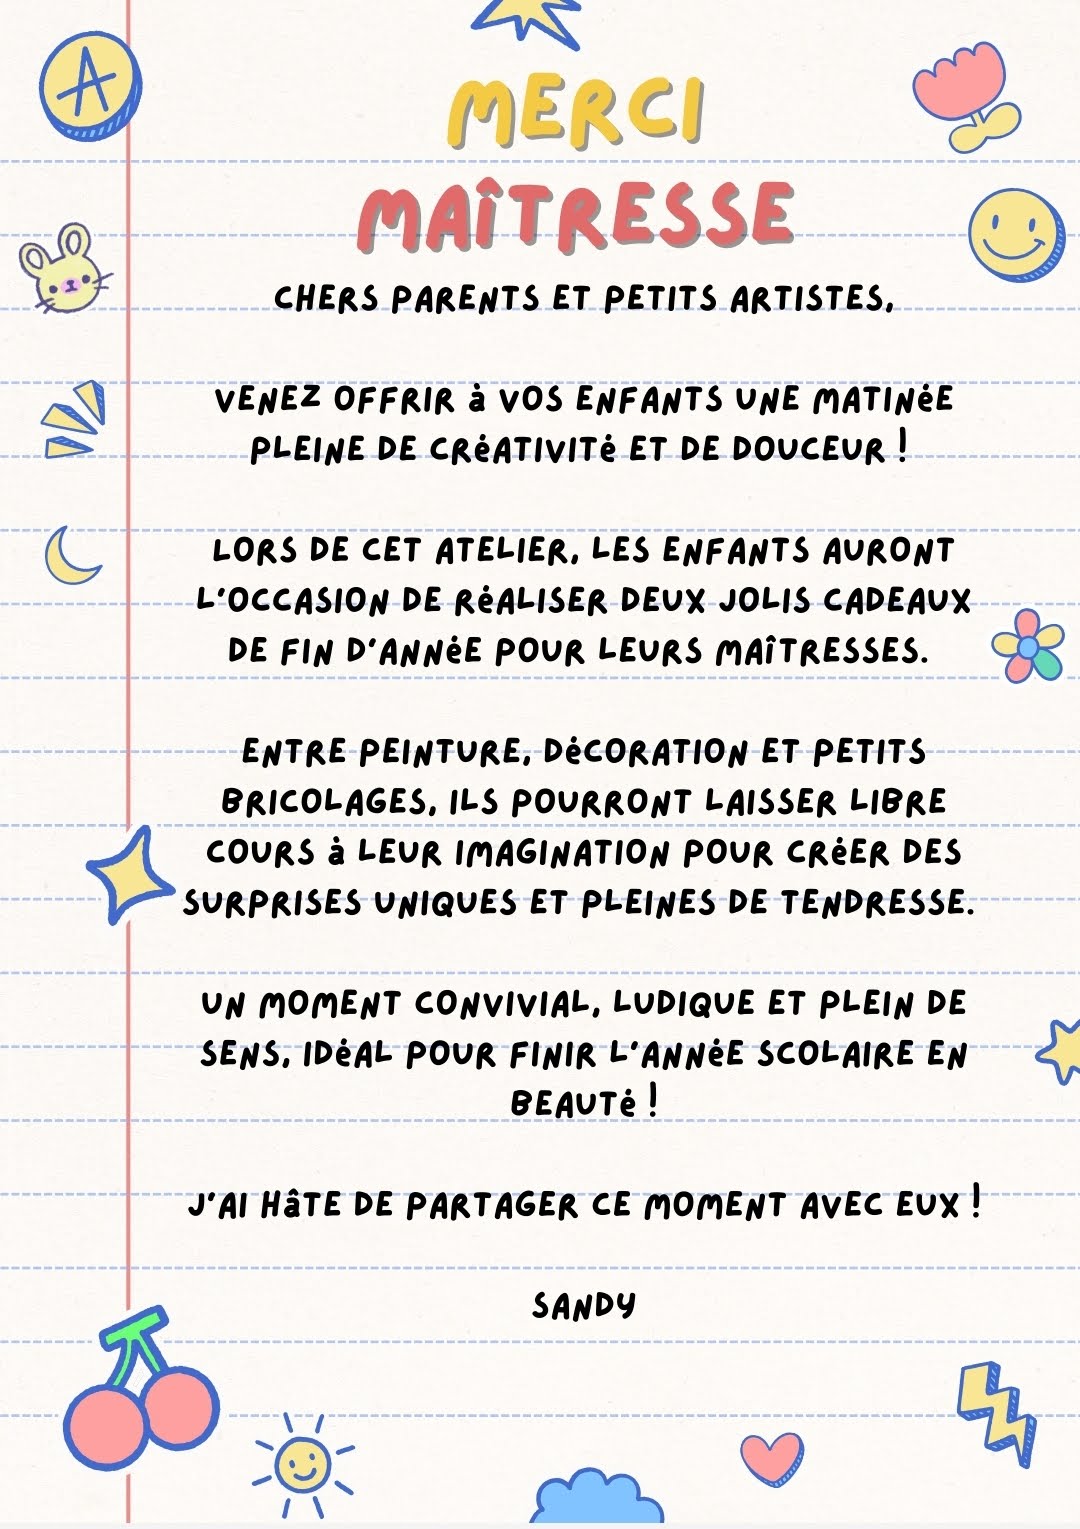 A
MERCI
MAÎTRESSE
CHERS PARENTS ET PETITS ARTISTES,
VENEZ OFFRIR à VOS ENFANTS UNE MATINéE
PLEINE DE CRéATIVITé ET DE DOUCEUR !
LORS DE CET ATELIER, LES ENFANTS AURONT
L'OCCASION DE RéALISER DEUX JOLIS CADEAUX
DE FIN D'ANNéE POUR LEURS MAÎTRESSES.
ENTRE PEINTURE, DéCORATION ET PETITS
BRICOLAGES, ILS POURRONT LAISSER LIBRE
COURS à LEUR IMAGINATION POUR CRéER DES
SURPRISES UNIQUES ET PLEINES DE TENDRESSE.
UN MOMENT CONVIVIAL, LUDIQUE ET PLEIN DE
SENS, IDéAL POUR FINIR L'ANNéE SCOLAIRE EN
BEAUTé !
J'AI HâTE DE PARTAGER CE MOMENT AVEC EUX !
SANDY